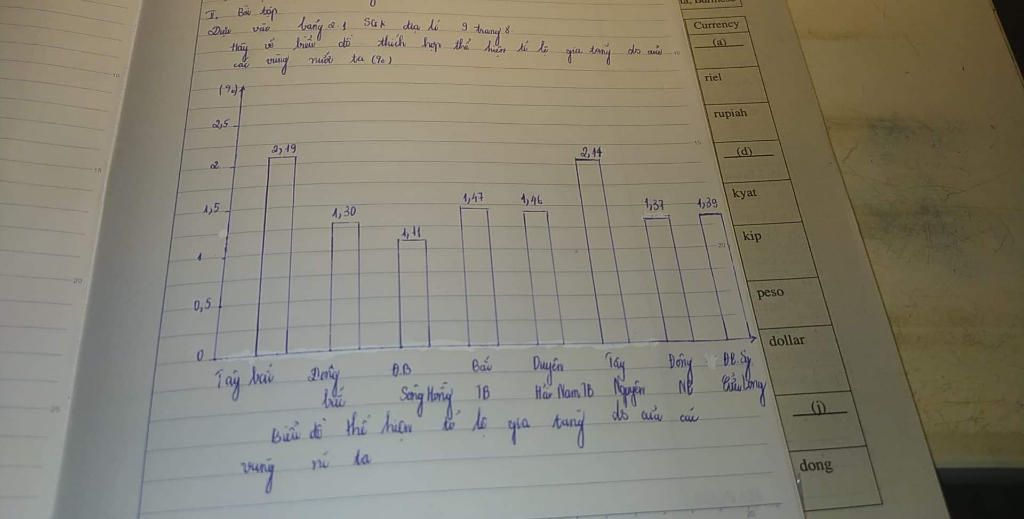 II. Bài tập
Dựa vào bảng 2.1 SGK địa lí 9 trang 8
Hãy vẽ biểu đồ thích hợp thể hiện tỉ lệ gia tăng ds của
các vùng nước ta (%)
(%)
2,5
2
1,5
1
0,5
0
2,19
1,30
1,11
1,47
1,46
2,14
1,37
1,39
Tây bắc
Đông
bắc
Đ.B
Sông Hồng
Bắc
TB
Duyên
Hải Nam TB
Tây
Nguyên
Đông
NB
ĐB.Sg
Cửu Long
Biểu đồ thể hiện tỉ lệ gia tăng ds của các
vùng nc ta
Currency
(a)
riel
rupiah
(d)
kyat
kip
peso
dollar
(j)
dong
10
15
20
25
10
15
20